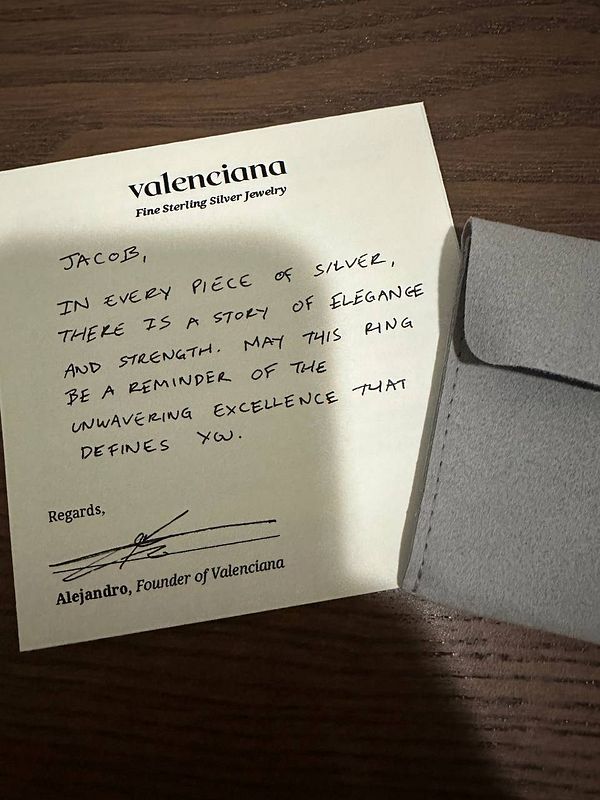 valenciana
Fine Sterling Silver Jewelry
JACOB,
IN EVERY PIECE OF SILVER,
THERE IS A STORY OF ELEGANCE
AND STRENGTH. MAY THIS RING
BE A REMINDER OF THE
UNWAVERING EXCELLENCE THAT
DEFINES YOU.
Regards,
Alejandro, Founder of Valenciana